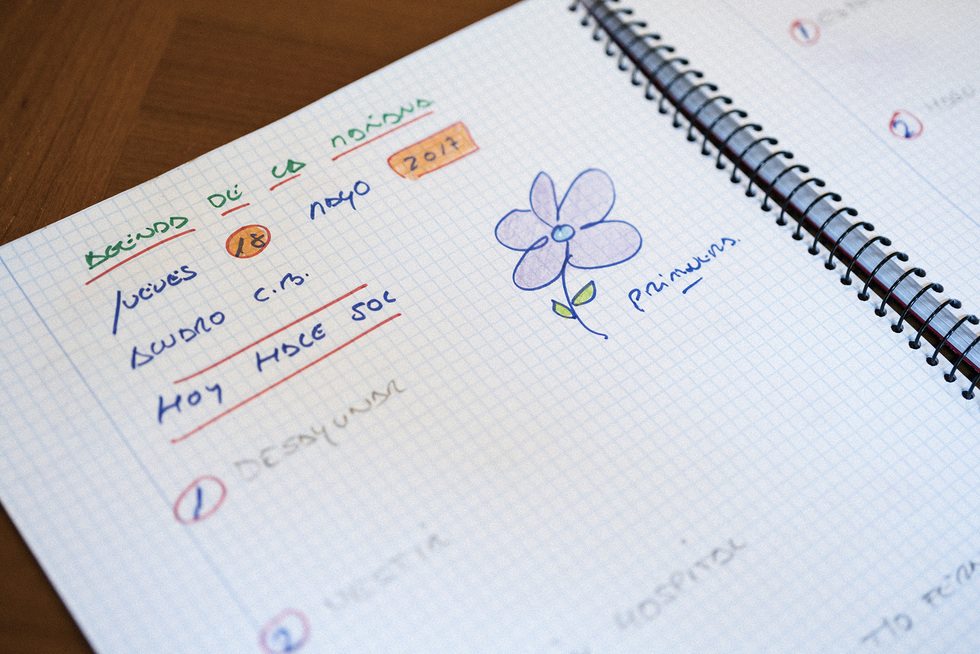 AGENDA DE LA MAÑANA
JUEVES 18 MAYO 2017
ALVARO C.B.
HOY HACE SOL
PRIMAVERA.
1 DESAYUNAR
2
HOSPITAL
TIO
1
2